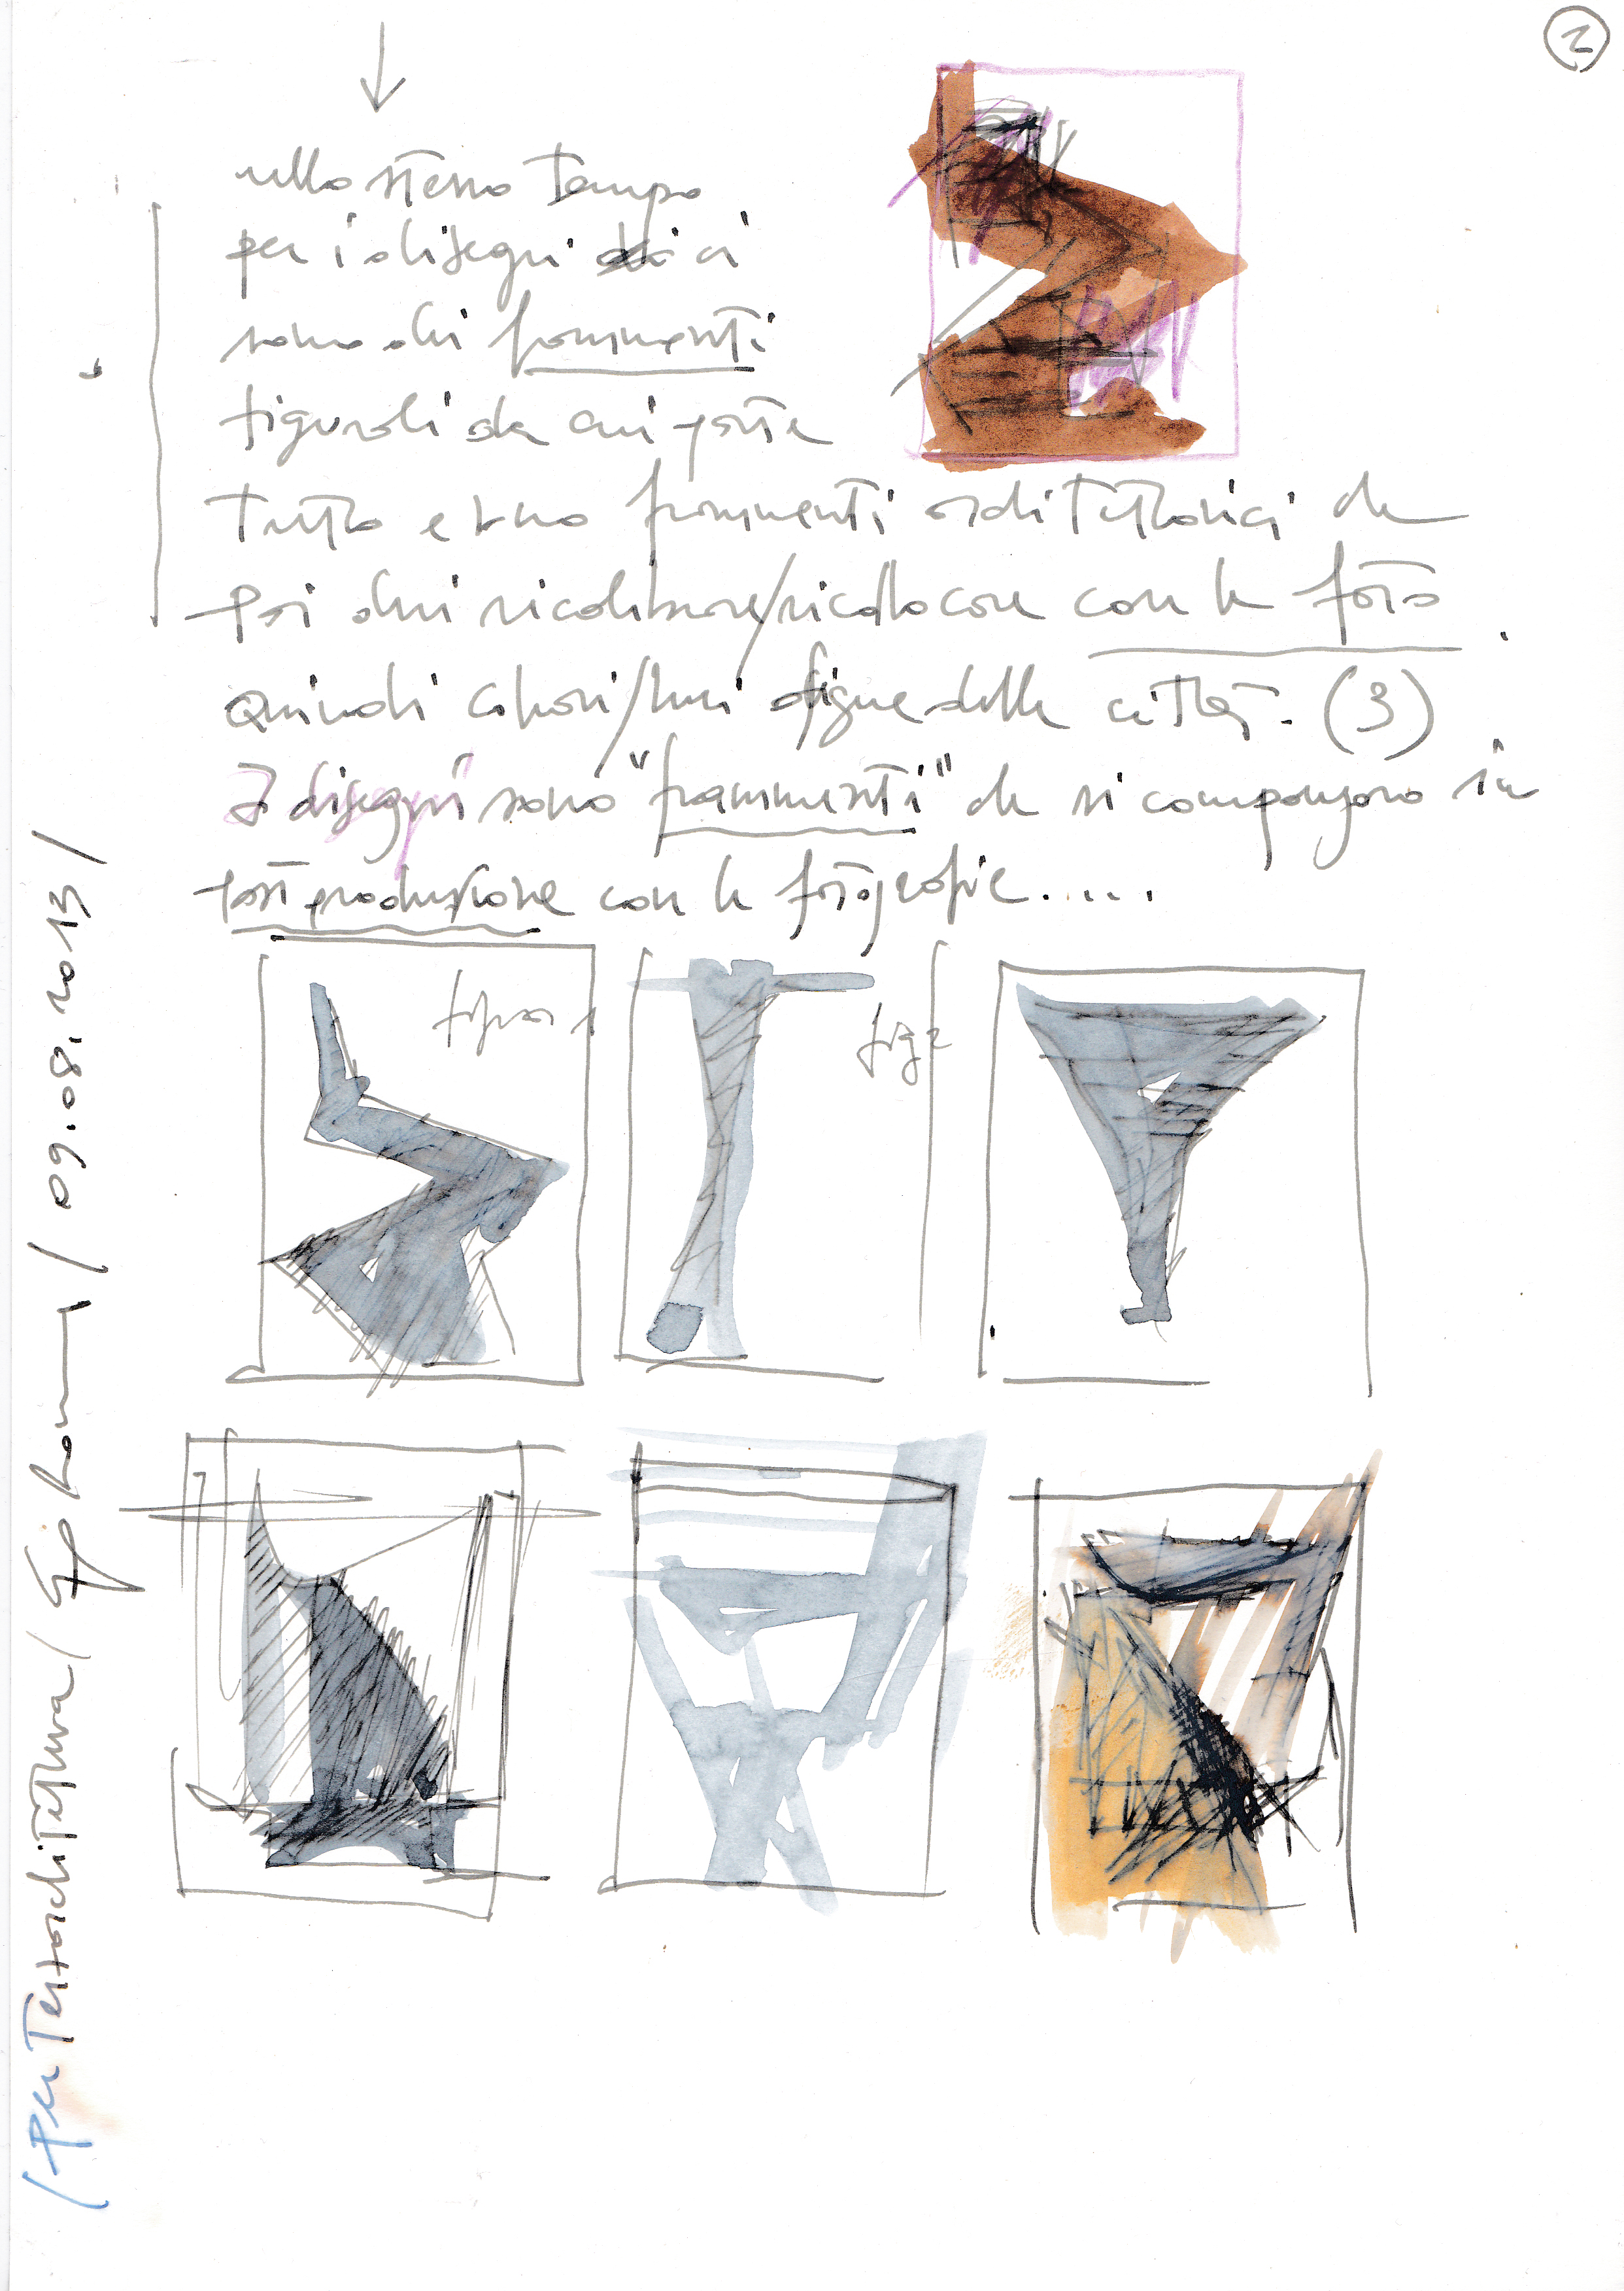 2
nello stesso tempo
per i disegni ci
sono dei frammenti
figurali da cui parte
tutto e sono frammenti architettonici che
poi devi ricalibrare/ricollocare con le foto
quindi colori/luci figure della città. (3)
I disegni sono "frammenti" che si compongono in
postproduzione con le fotografie.....
figura 1
fig 2
/ per Teknoarchitettura /
/ 09.08.2013 /